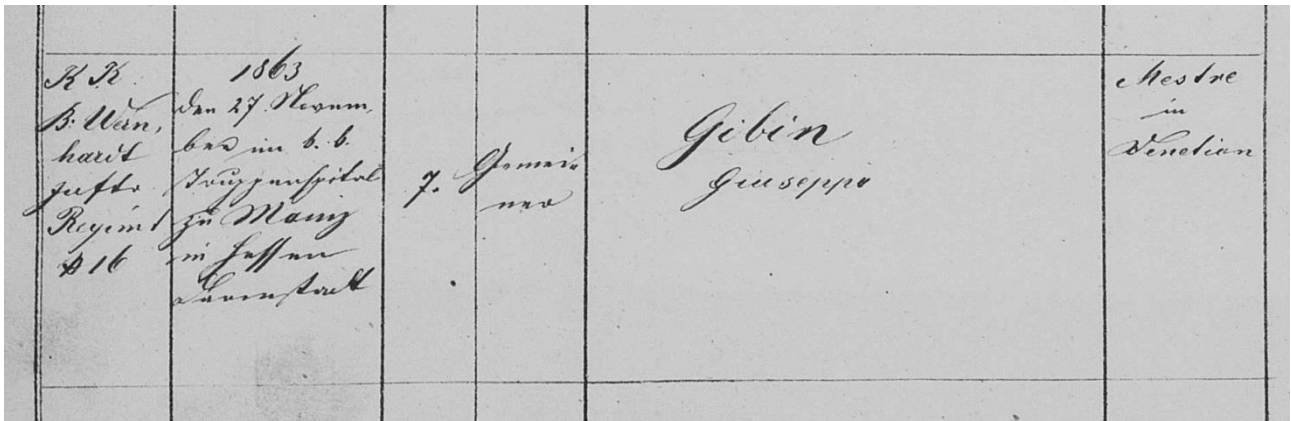 K K.
B: Wern,
hardt
Inftr.
Regimt
№ 16
1863
den 27. Novem,
ber im k. k.
Truppenspital
zu Mainz
in Hessen
Darmstadt
7.
Gemei-
ner
Gibin
Giuseppe
Mestre
in
Venetien